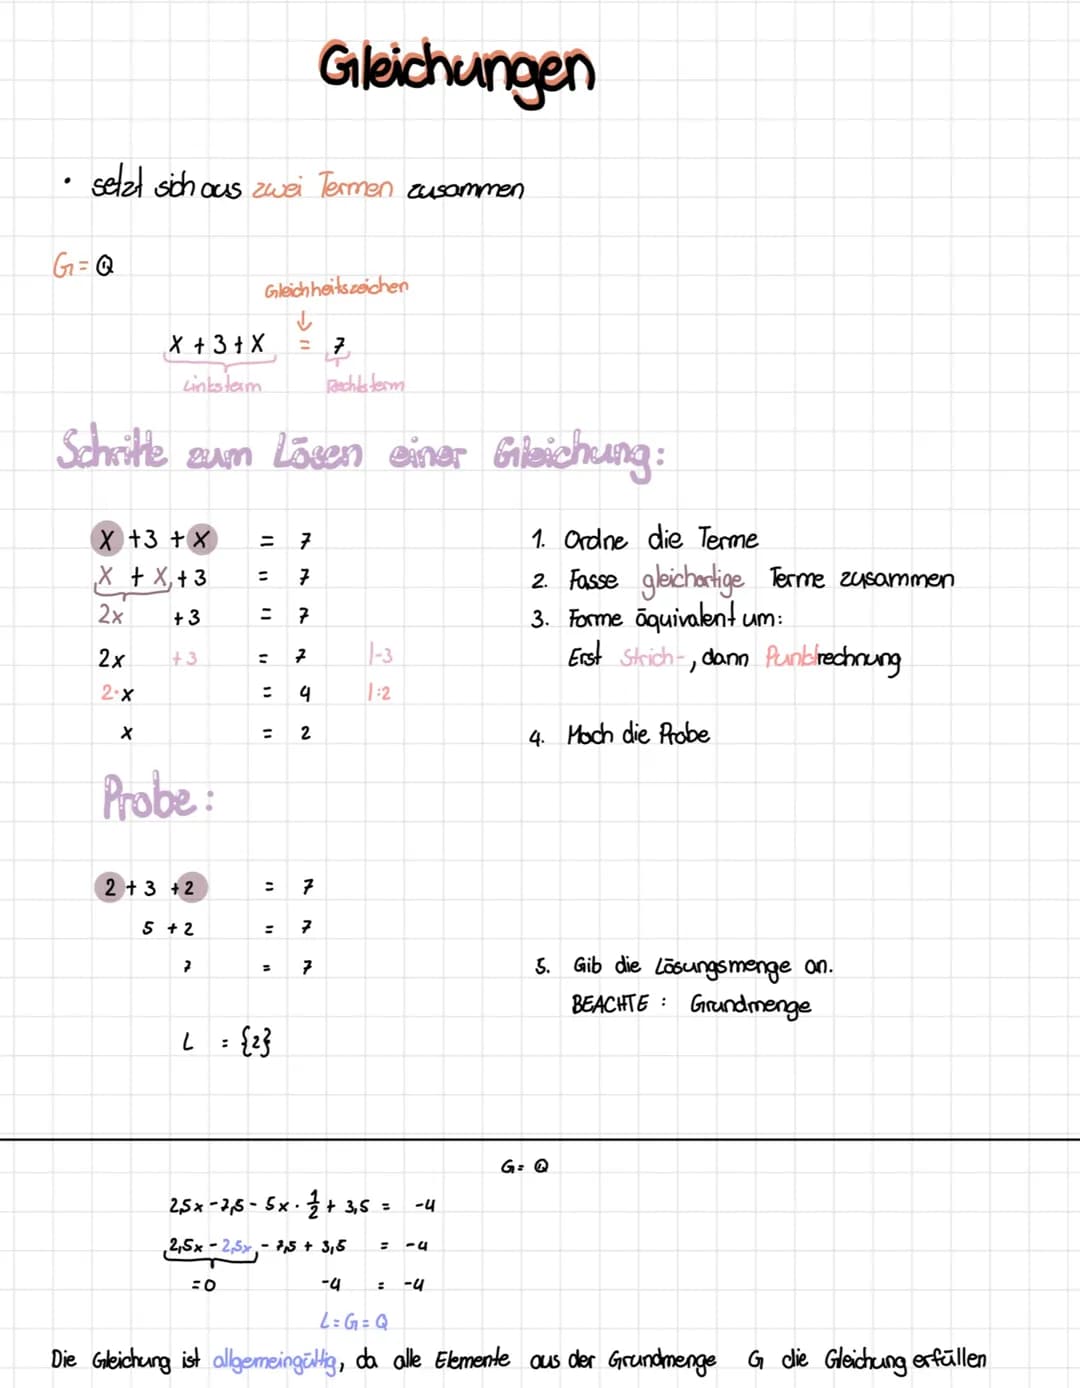 Gleichungen
• setzt sich aus zwei Termen zusammen
G = ℚ
Gleichheitszeichen
↓
x + 3 + x = 7
Linksterm Rechtsterm
Schritte zum Lösen einer Gleichung:
x + 3 + x = 7 1. Ordne die Terme
x + x + 3 = 7 2. Fasse gleichartige Terme zusammen
2x + 3 = 7 3. Forme äquivalent um:
2x + 3 = 7 |-3 Erst Strich-, dann Punktrechnung
2·x = 4 |:2
x = 2 4. Mach die Probe
Probe:
2 + 3 + 2 = 7
5 + 2 = 7
7 = 7 5. Gib die Lösungsmenge an.
BEACHTE : Grundmenge
L = {2}
G = ℚ
2,5x - 7,5 - 5x · 1/2 + 3,5 = -4
2,5x - 2,5x - 7,5 + 3,5 = -4
= 0 -4 = -4
L = G = Q
Die Gleichung ist allgemeingültig, da alle Elemente aus der Grundmenge G die Gleichung erfüllen